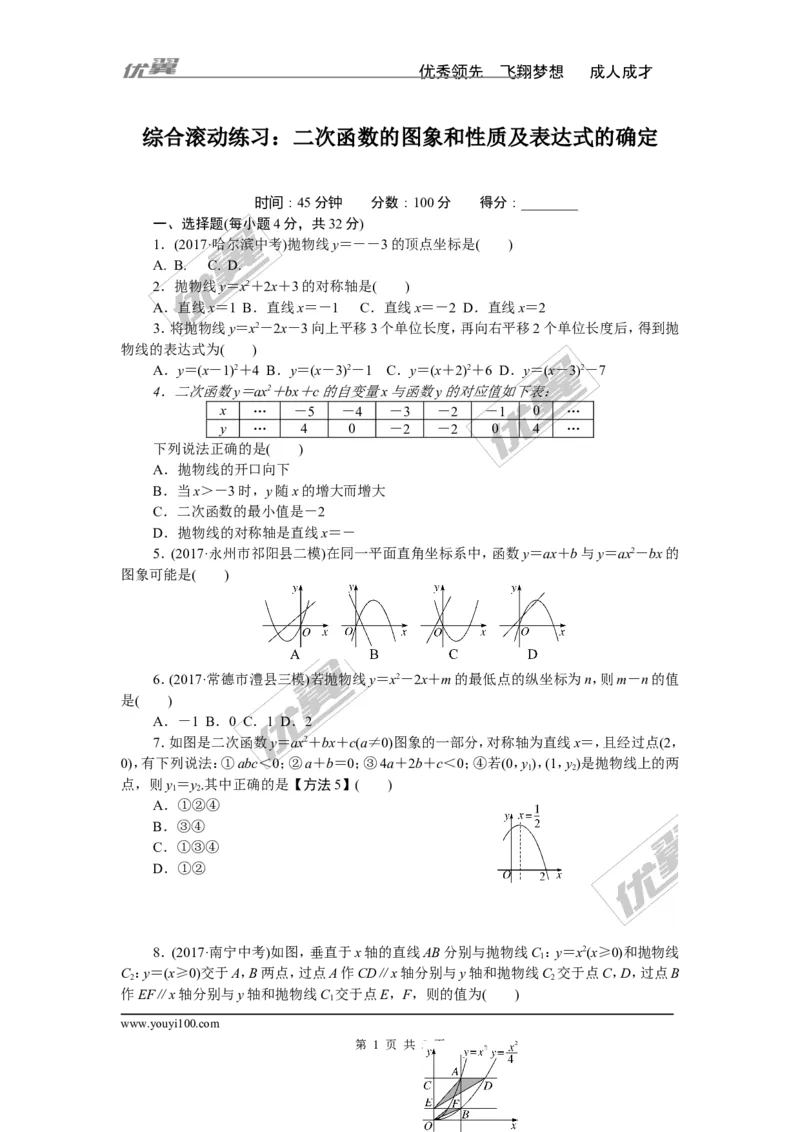 优翼 优秀领先 飞翔梦想 成人成才
综合滚动练习：二次函数的图象和性质及表达式的确定
时间：45分钟 分数：100分 得分：________
一、选择题(每小题4分，共32分)
1．(2017·哈尔滨中考)抛物线y＝－－3的顶点坐标是( )
A. B. C. D.
2．抛物线y＝x2＋2x＋3的对称轴是( )
A．直线x＝1 B．直线x＝－1 C．直线x＝－2 D．直线x＝2
3．将抛物线y＝x2－2x－3向上平移3个单位长度，再向右平移2个单位长度后，得到抛
物线的表达式为( )
A．y＝(x－1)2＋4 B．y＝(x－3)2－1 C．y＝(x＋2)2＋6 D．y＝(x－3)2－7
4．二次函数y＝ax2＋bx＋c的自变量x与函数y的对应值如下表：
x … －5 －4 －3 －2 －1 0 …
y … 4 0 －2 －2 0 4 …
下列说法正确的是( )
A．抛物线的开口向下
B．当x＞－3时，y随x的增大而增大
C．二次函数的最小值是－2
D．抛物线的对称轴是直线x＝－
5．(2017·永州市祁阳县二模)在同一平面直角坐标系中，函数y＝ax＋b与y＝ax2－bx的
图象可能是( )
y y y y
O x O x O x O x
A B C D
6．(2017·常德市澧县三模)若抛物线y＝x2－2x＋m的最低点的纵坐标为n，则m－n的值
是( )
A．－1 B．0 C．1 D．2
7．如图是二次函数y＝ax2＋bx＋c(a≠0)图象的一部分，对称轴为直线x＝，且经过点(2，
0)，有下列说法：①abc＜0；②a＋b＝0；③4a＋2b＋c＜0；④若(0，y1)，(1，y2)是抛物线上的两
点，则y1＝y2.其中正确的是【方法5】( )
A．①②④
B．③④
C．①③④
D．①②
y x=1/2
O 2 x
8．(2017·南宁中考)如图，垂直于x轴的直线AB分别与抛物线C1：y＝x2(x≥0)和抛物线
C2：y＝(x≥0)交于A，B两点，过点A作CD∥x轴分别与y轴和抛物线C2交于点C，D，过点B
作EF∥x轴分别与y轴和抛物线C1交于点E，F，则的值为( )
www.youyi100.com
第 1 页 共
y y=x2 y=x2/4
A
C D
E F
B
O x